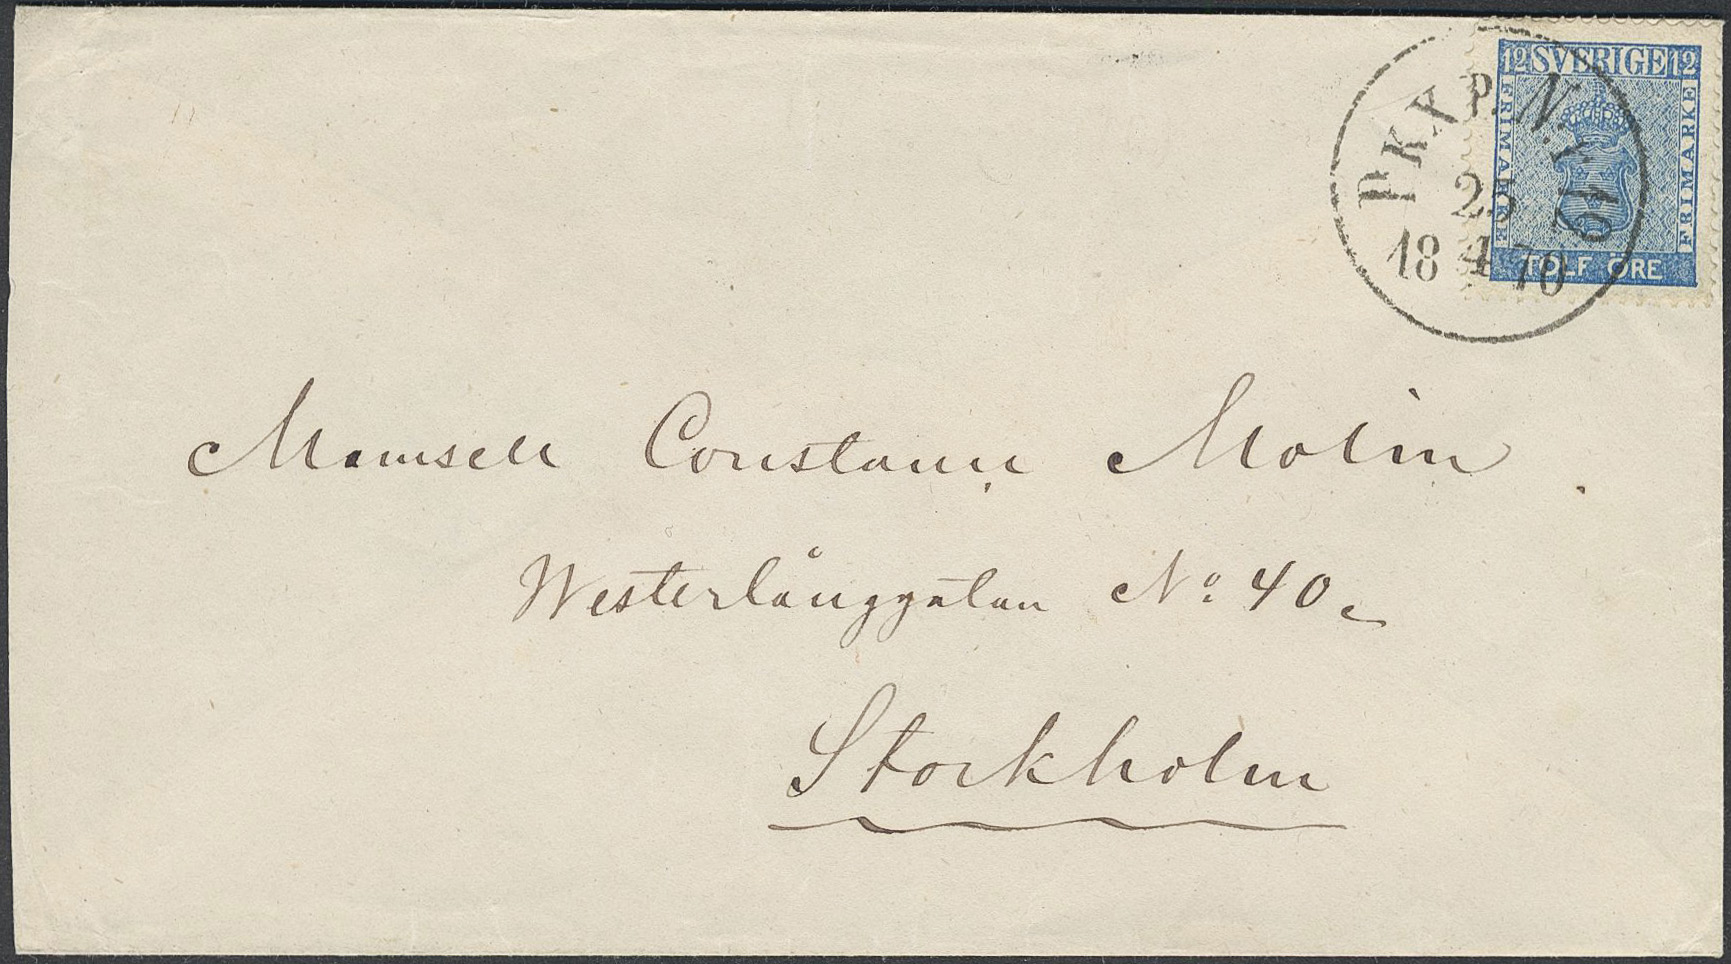 12 SVERIGE 12
FRIMÄRKE
FRIMÄRKE
TOLF ÖRE
PKXP. Nr 2
25
18 4 70
Mamsell Constance Molin
Westerlånggatan No: 40
Stockholm